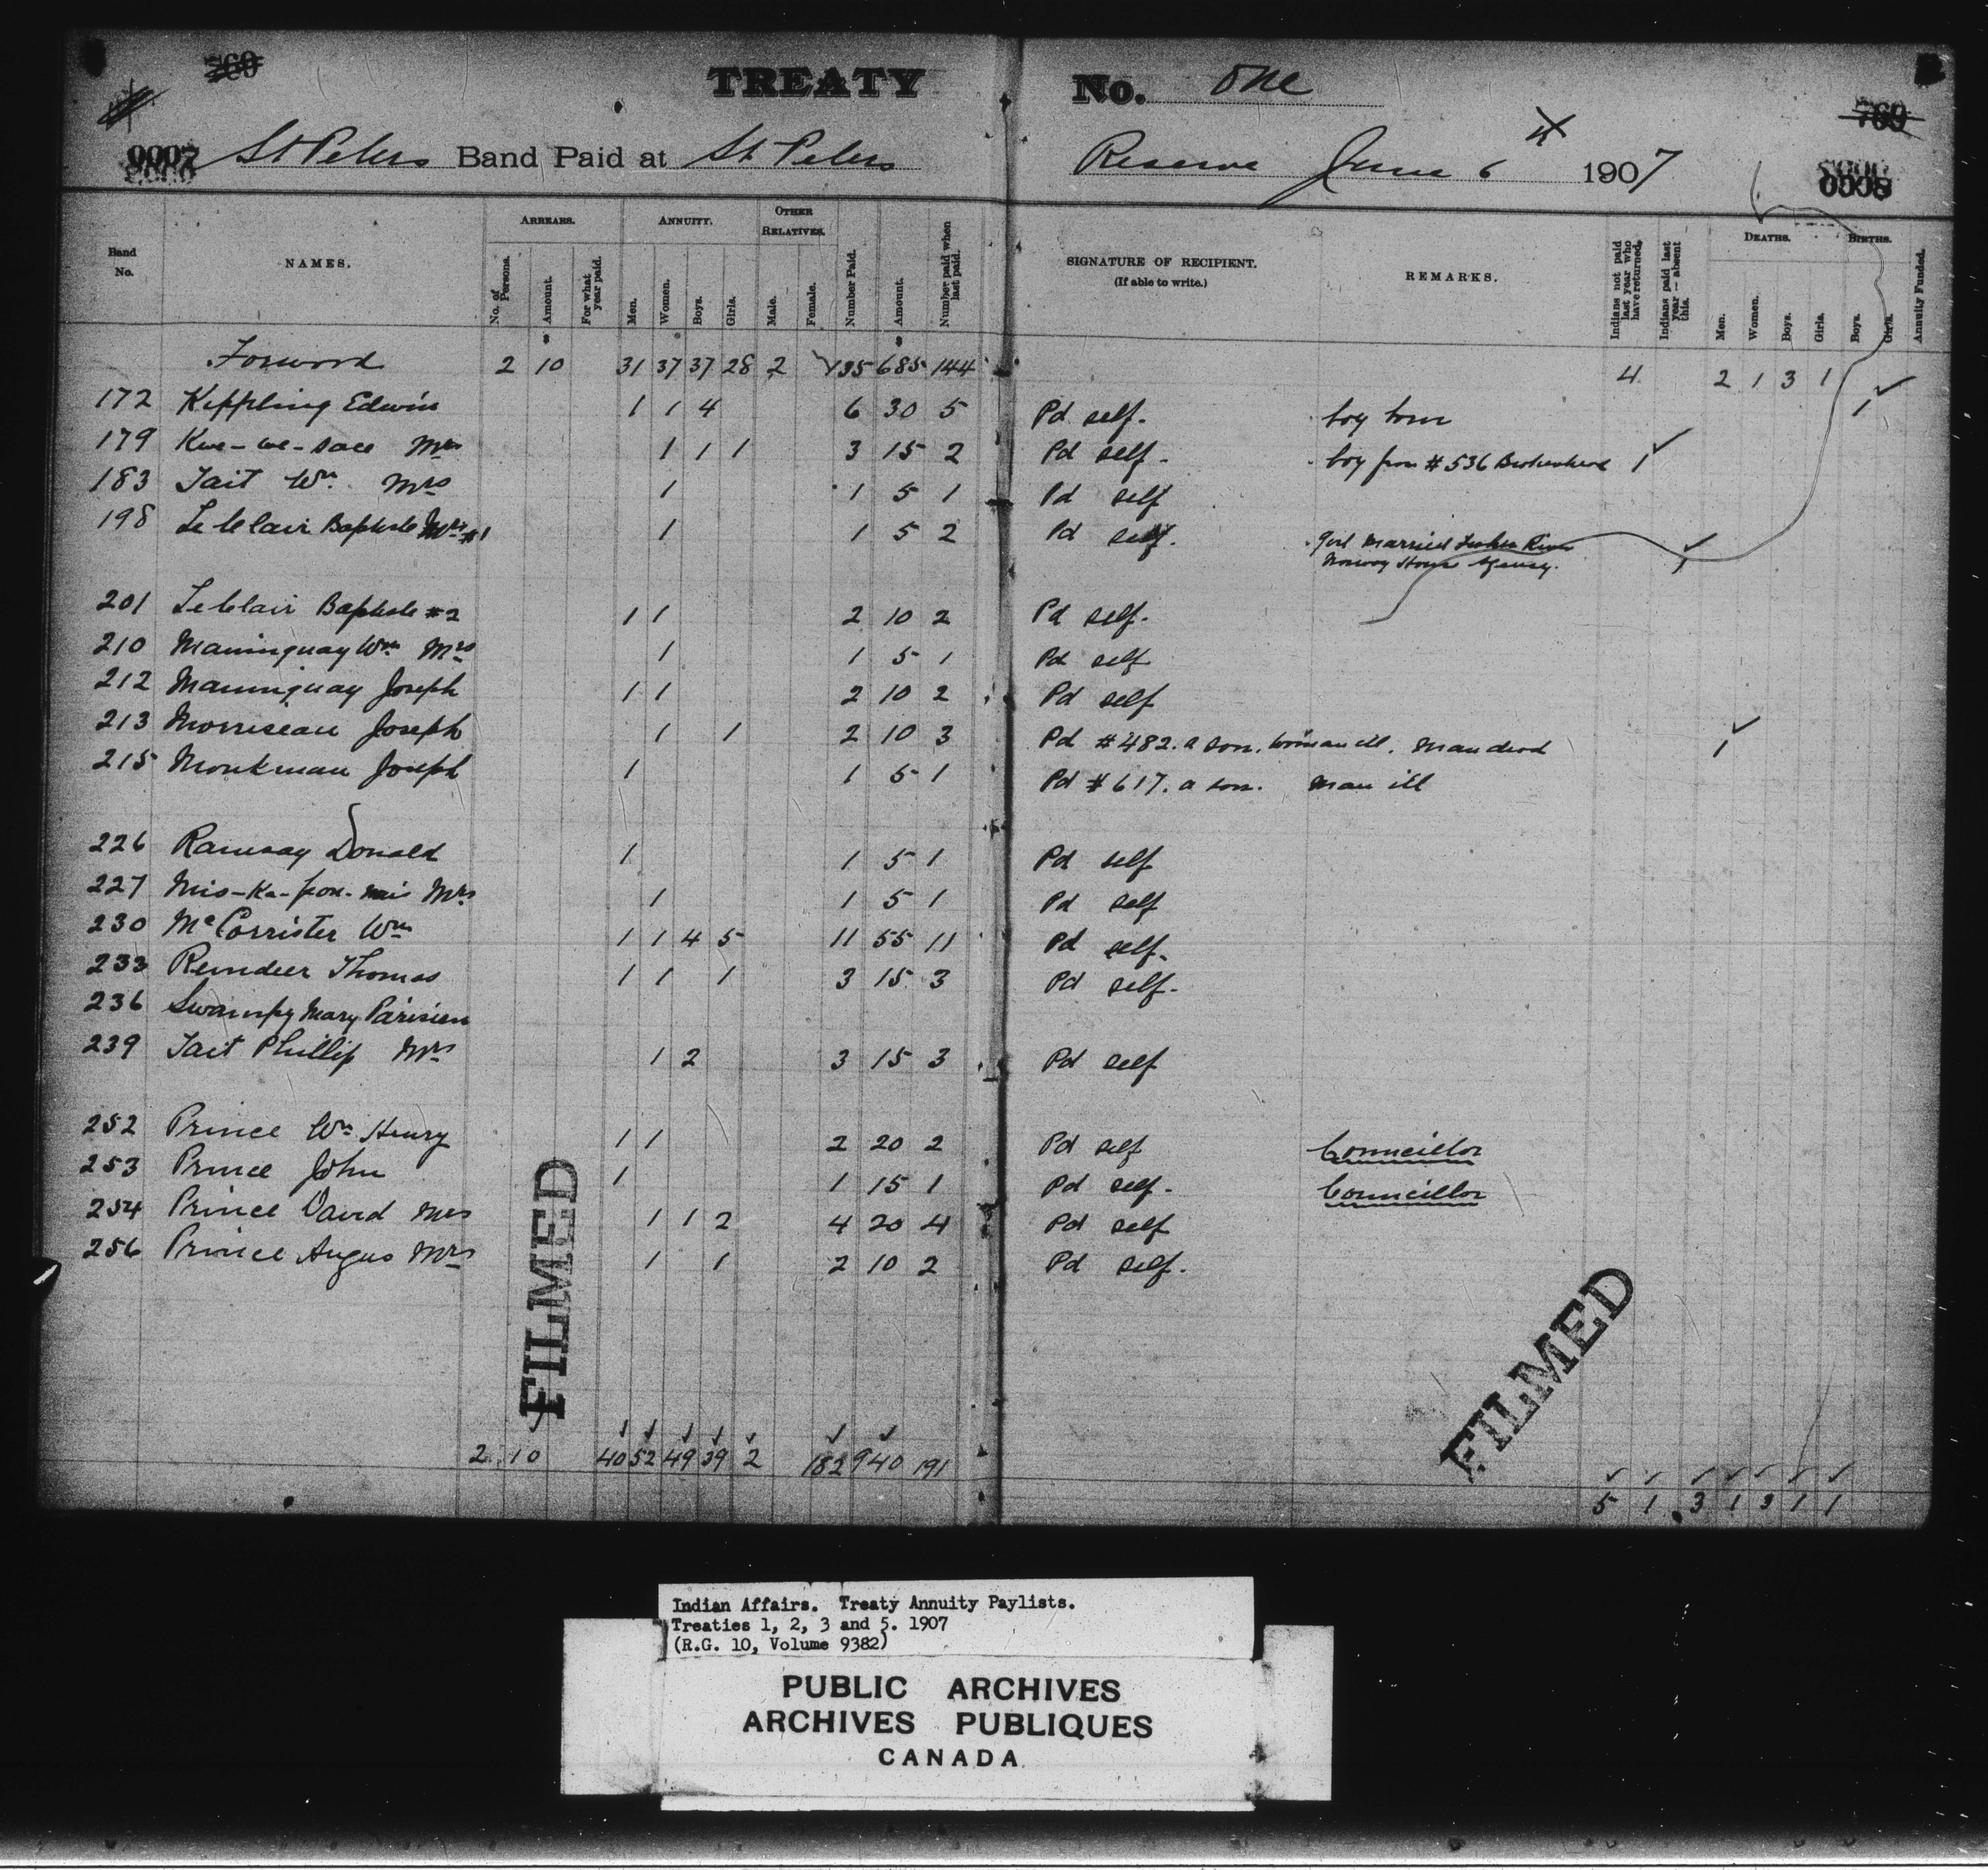 TREATY No. One
St Peters Band Paid at St. Peters Reserve June 6th 1907
0007 0008
Band No. NAMES. ARREARS. No. of Persons. Amount. For what year paid. ANNUITY. Men. Women. Boys. Girls. OTHER RELATIVES. Male. Female. Number Paid. Amount. Number paid when last paid. SIGNATURE OF RECIPIENT. (If able to write.) REMARKS. Indians not paid last year who have returned. Indians paid last year — absent this. DEATHS. Men. Women. Boys. Girls. BIRTHS. Boys. Girls. Annuity Funded.
Forword 2 10 31 37 37 28 2 135 685 144 4 2 1 3 1
172 Keppling Edwin 1 1 4 6 30 5 Pd self. boy born 1
179 Kwe-we-sace Mrs 1 1 1 3 15 2 Pd self. boy from #536 Brokenhead 1
183 Tait Wm. Mrs 1 1 5 1 Pd self
198 LeClair Baptiste Mrs #1 1 1 5 2 Pd self. Girl Married Fisher River
Norway House Agency. 1
201 LeClair Baptiste #2 1 1 2 10 2 Pd self.
210 Maninguay Wm Mrs 1 1 5 1 Pd self
212 Maninguay Joseph 1 1 2 10 2 Pd self
213 Morriseau Joseph 1 1 2 10 3 Pd #482. a son. woman ill. Man dead 1
215 Monkman Joseph 1 1 5 1 Pd #617. a son. Man ill
226 Ramsay Donald 1 1 5 1 Pd self
227 Mis-Ka-pon-nis Mrs 1 1 5 1 Pd self
230 McCorrister Wm 1 1 4 5 11 55 11 Pd self.
233 Reindeer Thomas 1 1 1 3 15 3 Pd self.
236 Swampy Mary Parisien
239 Tait Phillip Mrs 1 2 3 15 3 Pd self
252 Prince Wm Henry 1 1 2 20 2 Pd self Councillor
253 Prince John 1 1 15 1 Pd self. Councillor
254 Prince David Mrs 1 1 2 4 20 4 Pd self
256 Prince Angus Mrs 1 1 2 10 2 Pd self.
FILMED
FILMED
2 10 40 52 49 39 2 182 940 191
5 1 3 1 3 1 1
Indian Affairs. Treaty Annuity Paylists.
Treaties 1, 2, 3 and 5. 1907
(R.G. 10, Volume 9382)
PUBLIC ARCHIVES
ARCHIVES PUBLIQUES
CANADA